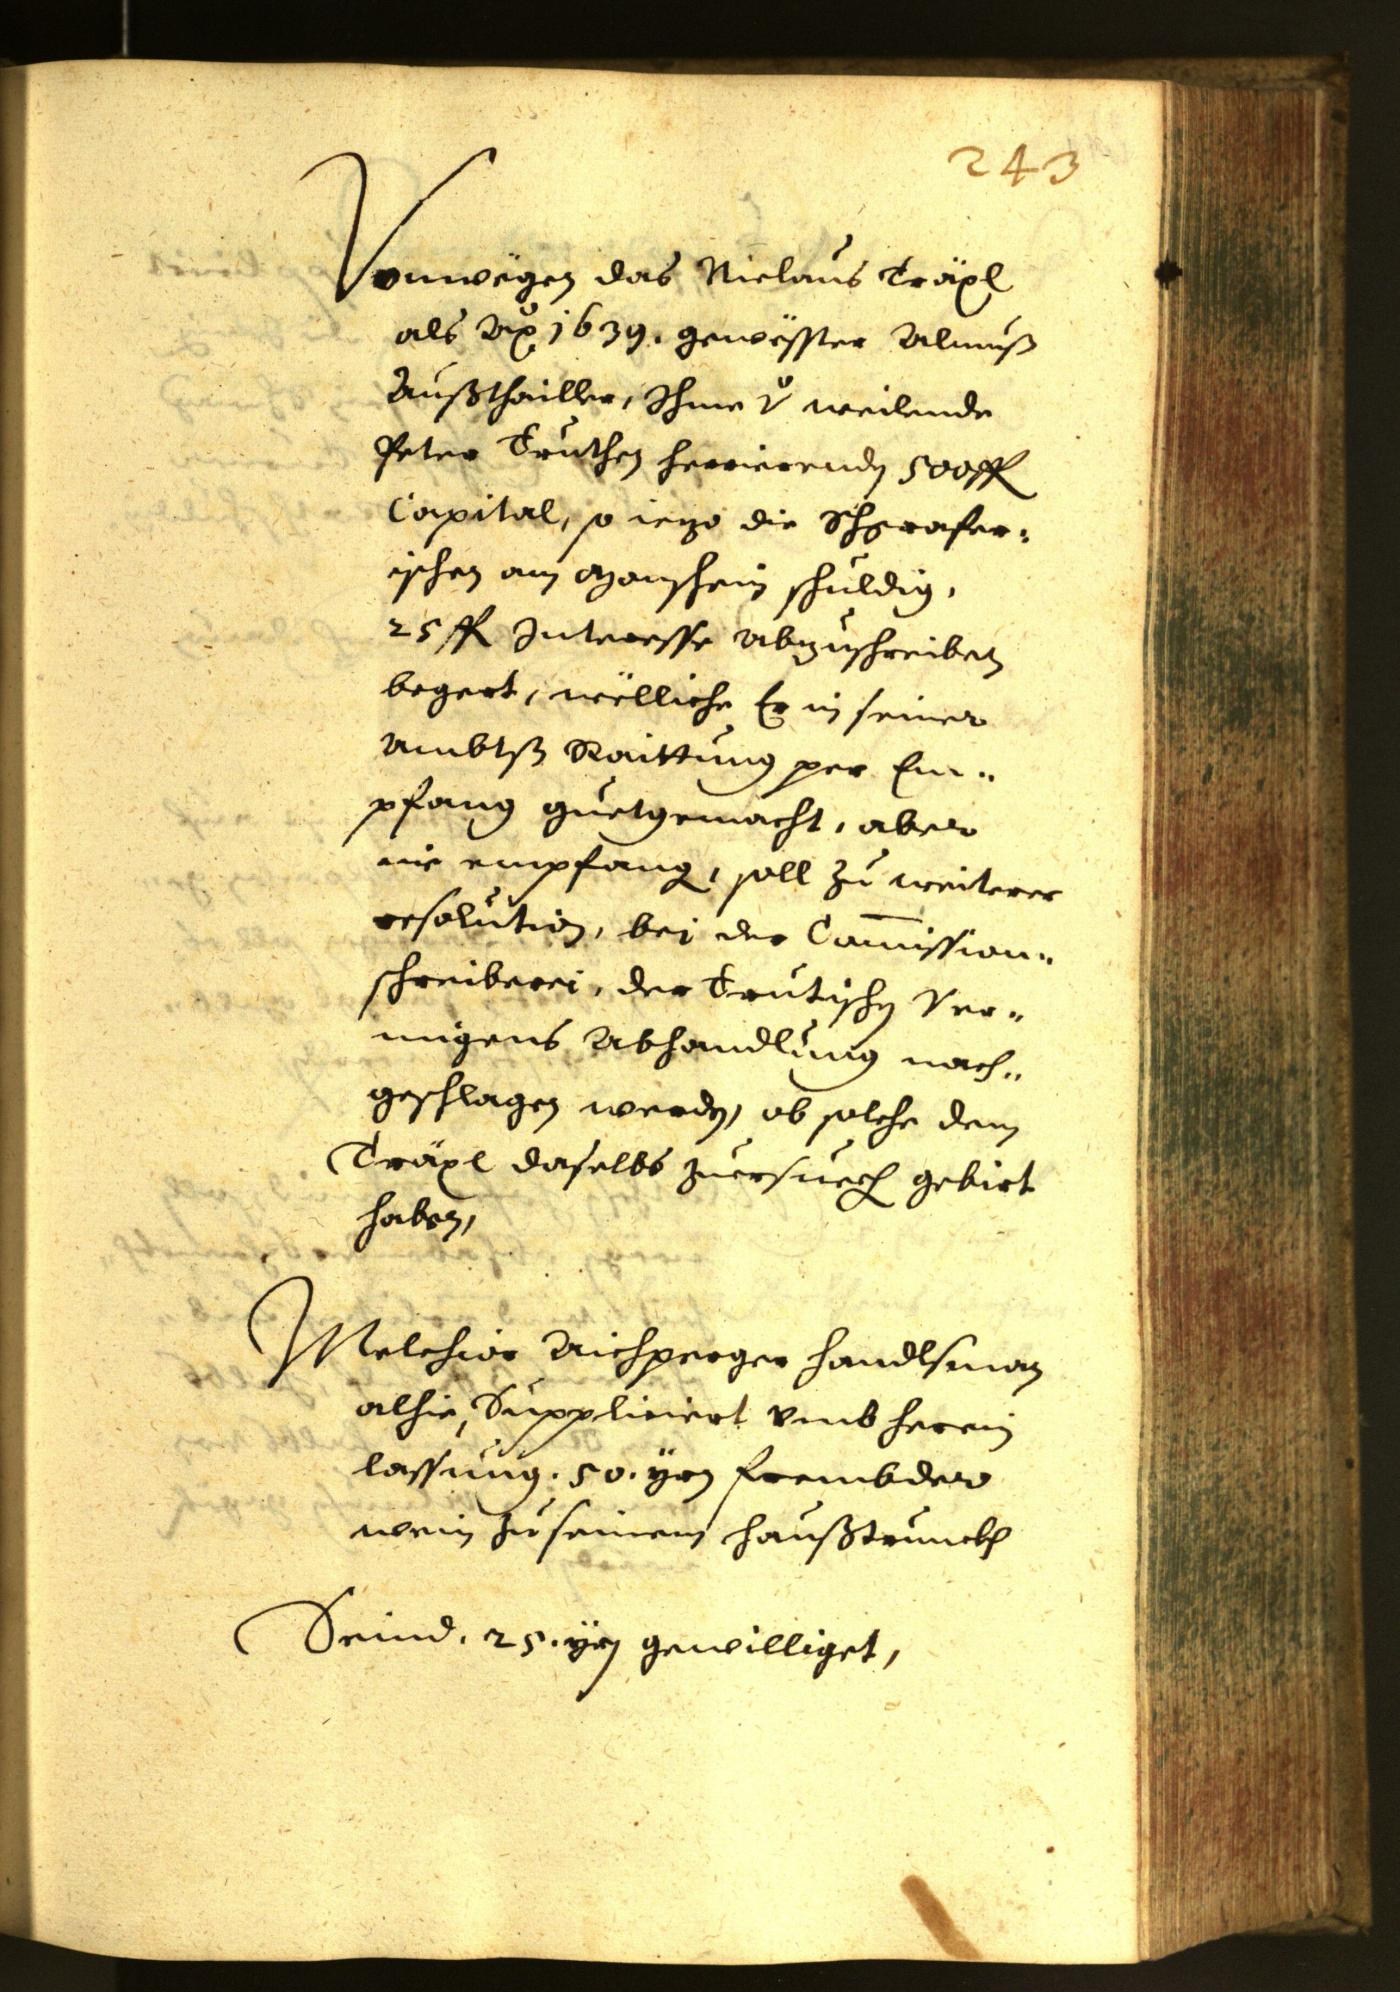 243
Vonwëgen das Niclaus Träxl
als Aõ. 1639. gewësster Almuß
Außthailler, Ihme v̊ weilende
Peter Truthen herrierendn 500 fl
Capital, so iezo die
ischen am schuldig,
25 fl Interesse abzuschreiben
begert, wëlliche Er in seiner
Ambtß Raittung per Em-
pfang guetgemacht, aber
nie empfang, soll zu weiterer
resolution, bei der Com̅ission-
schreiberei, der Trutischn Ver-
migens Abhandlung nach-
geschlagen werdn, ob solche dem
Träxl daselbs zuersuech gebirt
haben,
Melchior Aichperger handlsman
alhie, Suppliciert vmb herein
lassung. 50. yrn frembder
wein zu seinem haußtrunckh
Seind. 25. yrn gewilliget,